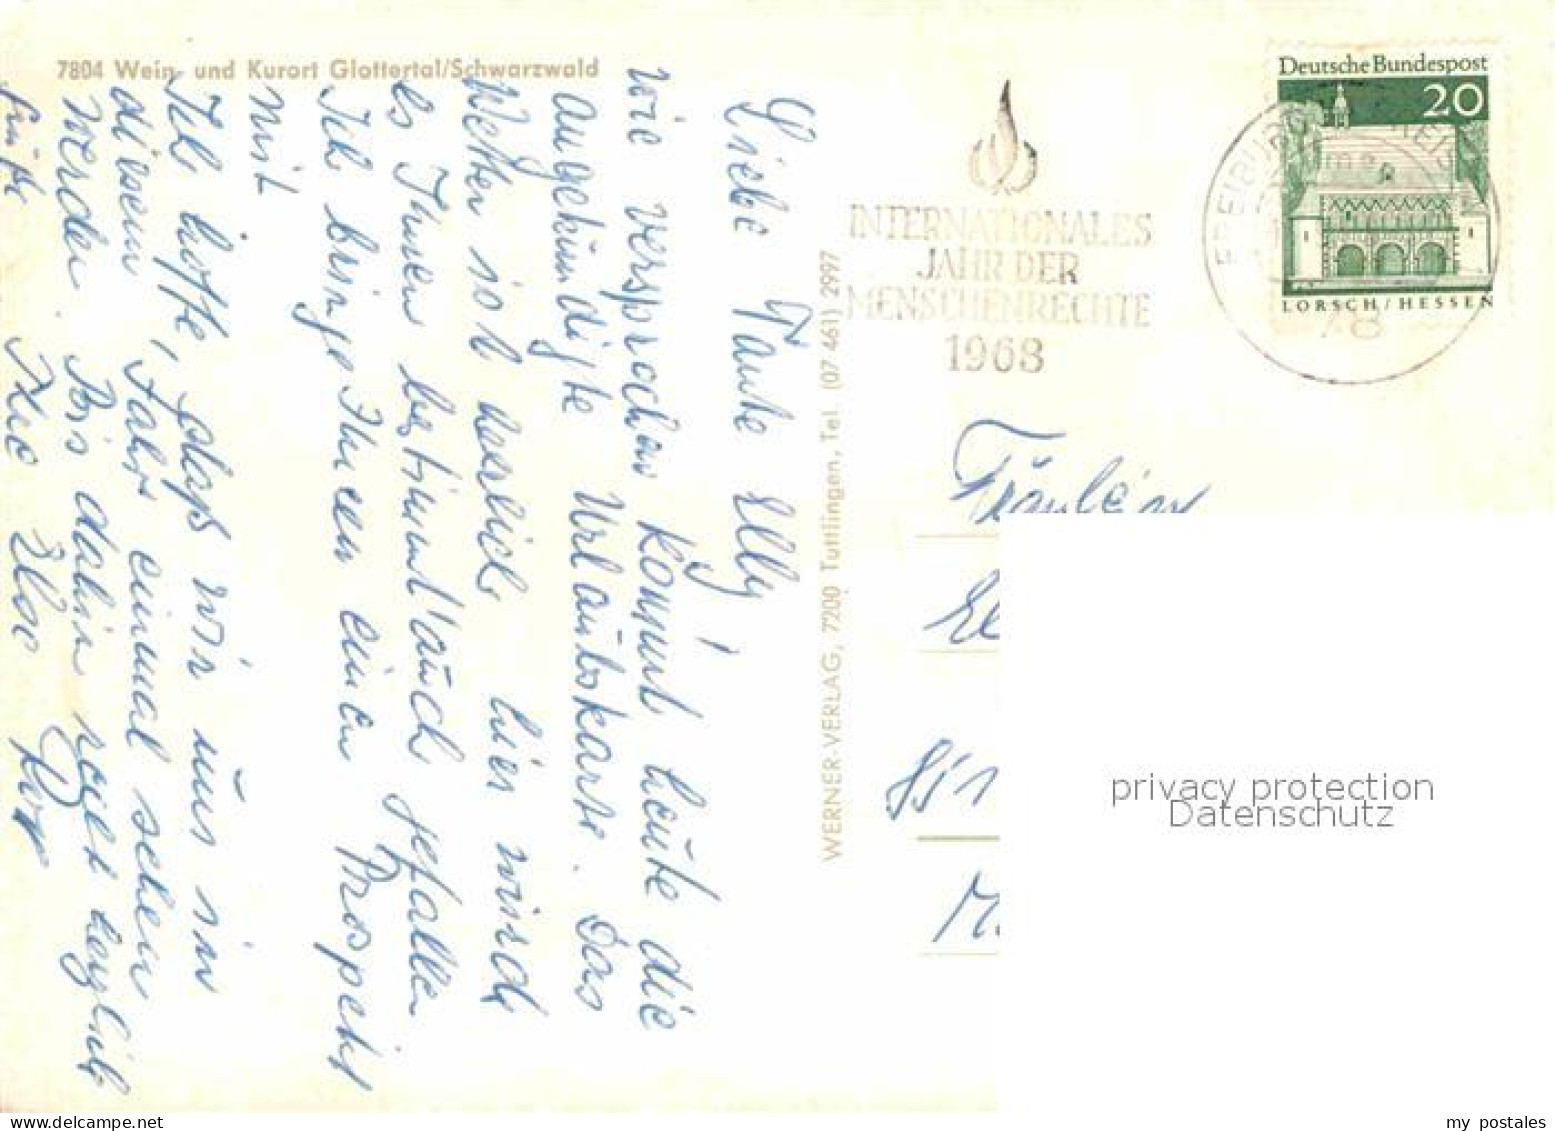 7804 Wein- und Kurort Glottertal/Schwarzwald
Liebe Tante Elly!
wie versprochen kommt heute die
angekündigte Urlaubskarte. Das
Wetter ist herrlich hier wird
es Ihnen bestimmt auch gefallen
Ich bringe Ihnen einen Prospekt
mit
Ich hoffe, daß wir uns in
diesem Jahr einmal sehen
werden. Bis dahin recht herzlich
Grüße Ihre Else
WERNER-VERLAG, 7200 Tuttlingen, Tel. (07 461) 2997
INTERNATIONALES
JAHR DER
MENSCHENRECHTE
1968
Deutsche Bundespost
20
LORSCH/HESSEN
FREIBURG
78
Fräulein
privacy protection
Datenschutz
my postales